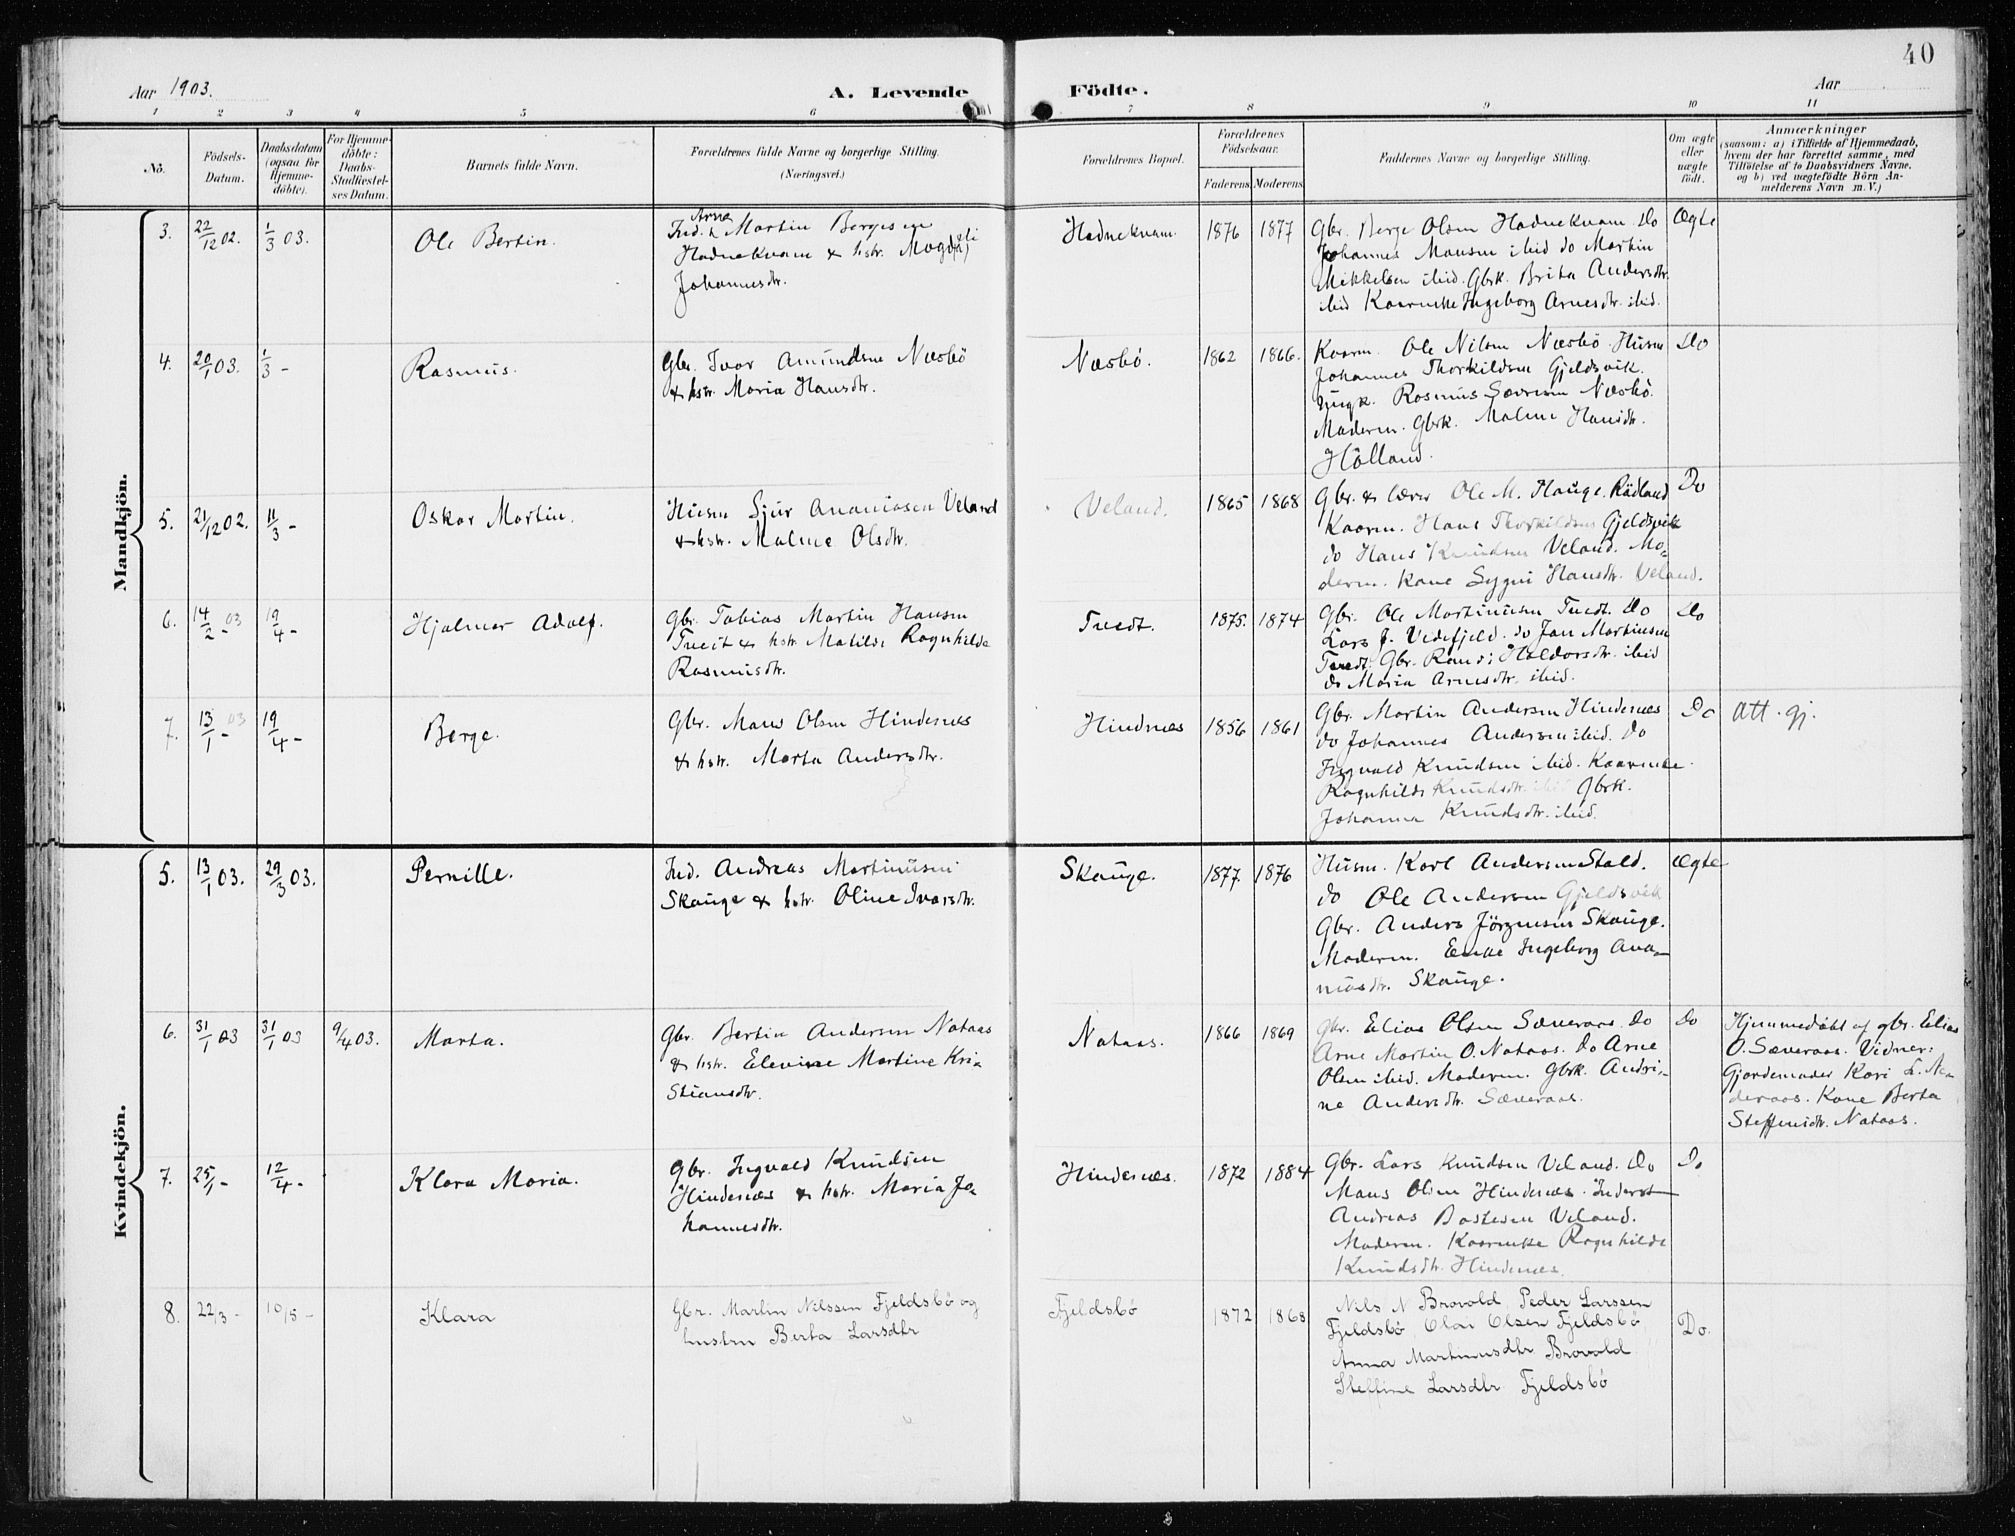 40
Aar 1903.
A. Levende
Födte.
Aar
1 2 3 4 5 6 7 8 9 10 11
No.
Födsels-
Datum.
Daabsdatum
(ogsaa for
Hjemme-
döbte).
For Hjemme-
döbte:
Daabs-
Stadfæstel-
ses Datum.
Barnets fulde Navn.
Forældrenes fulde Navne og borgerlige Stilling.
(Næringsvei.)
Forældrenes Bopæl.
Forældrenes
Födselsaar.
Faderens Moderens
Faddernes Navne og borgerlige Stilling.
Om ægte
eller
uægte
födt.
Anmærkninger
(saasom: a) i Tilfælde af Hjemmedaab,
hvem der har forrettet samme, med
Tilföielse af to Daabsvidners Navne.
og b) ved uægtefödte Börn An-
melderens Navn m. V.)
Mandkjön.
3. 22/12 02. 1/3 03. Ole Bertin.
Arne
Ind. Martin Bergesen
Hodnekvam & hstr. Magdali
Johannesdtr.
Hodnekvam. 1876 1877
Gbr. Berge Olsen Hodnekvam. Do
Johannes Monsen ibid do Martin
Mikkelsen ibid. Gbrk. Brita Andersdtr.
ibid Kaarmske Ingeborg Arnesdtr. ibid.
Ægte
4. 20/1 03. 1/3 - Rasmus.
Gbr. Ivar Amundsen Næsbö
& hstr. Maria Hansdtr.
Næsbö. 1862 1866.
Kaarm. Ole Nilsen Næsbö. Husm
Johannes Thorkildsen Gjeldsvik.
Ungk. Rasmus Sævresen Næsbö.
Moderen. Gbrk. Malene Hansdtr.
Hölland.
Do
5. 21/12 02. 11/3 - Oskar Martin.
Husm Sjur Ananiasen Veland
& hstr. Malene Olsdtr.
Veland. 1865 1868
Gbr. & lærer Ole M. Hauge. Rödland
Kaarm. Hans Thorkildsen Gjeldsvik
do Hans Knudsen Veland. Mo-
deren. Kone Sygni Hansdtr. Veland.
Do
6. 14/2 - 03 19/4 - Hjalmar Adolf.
Gbr. Tobias Martin Hansen
Tveit & hstr. Matilde Ragnhilde
Rasmusdtr.
Tvedt. 1875. 1874
Gbr. Ole Martinusen Tvedt. Do
Lars J. Vedefjeld. do Jan Martinsen
Tvedt. Gbr. Randi Haldorsdtr. ibid
do Maria Arnesdtr. ibid.
Do
7. 13/1 - 03 19/4 - Berge.
Gbr. Mons Olsen Hindenæs
& hstr. Marta Andersdtr.
Hindnæs 1856 1861
Gbr. Martin Andersen Hindenæs
do Johannes Andersen ibid. Do
Ingvald Knudsen ibid. Kaarmske.
Ragnhilde Knudsdtr. ibid Gbrk.
Johanna Knudsdtr. ibid.
Do
Att. gj.
Kvindekjön.
5. 13/1 03. 29/3 03. Pernille.
Ind. Andreas Martinusen
Skauge & hstr. Oline Ivarsdtr.
Skauge. 1877 1876
Husm. Karl Andersen Stald.
do Ole Andersen Gjeldsvik
Gbr. Anders Jörgensen Skauge.
Moderen. Enke Ingeborg Ana-
niasdtr. Skauge.
Ægte
6. 31/1 03 31/1 03 9/4 03. Marta.
Gbr. Bertin Andersen Nataas
& hstr. Elevine Martine Kri-
stiansdtr.
Nataas. 1866 1869
Gbr. Elias Olsen Sæveraas. Do
Arne Martin O. Nataas. Do Arne
Olsen ibid. Moderen. Gbrk. Andri-
ne Andersdtr. Sæveraas.
Do
Hjemmedöbt af gbr. Elias
O. Sæveraas. Vidner:
Gjordemoder Kari L. Ne-
deraas. Kone Berta
Steffensdtr. Nataas.
7. 25/1 - 12/4 - Klara Maria.
Gbr. Ingvald Knudsen
Hindenæs & hstr. Maria Jo-
hannesdtr.
Hindenæs. 1872 1884
Gbr. Lars Knudsen Veland. Do
Mons Olsen Hindenæs. Inderst
Andreas Bastesen Veland.
Moderen. Kaarmske Ragnhilde
Knudsdtr. Hindenæs.
Do
8. 22/3 - 10/5 - Klara
Gbr. Martin Nilssen Fjeldsbö og
hustru Berta Larsdtr
Fjeldsbö 1872 1868
Nils N Brovold, Peder Larssen
Fjeldsbö, Olai Olsen Fjeldsbö,
Anna Martinusdtr Brovold
Steffine Larsdtr Fjeldsbö
Do.